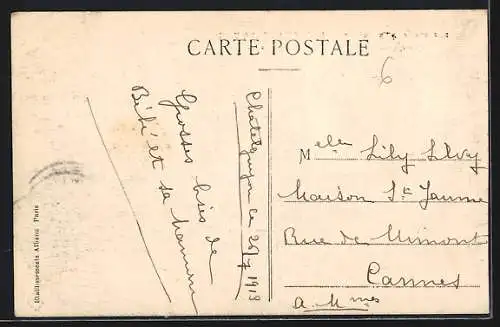 CARTE POSTALE
6
Chatelguyon le 25/7 1913
Grosses bises de
Bébé et sa Maman
Melle Lily Levy
Maison Ste Jeanne
Rue de Mimont
Cannes
A. Mmes
Etablissements Paris